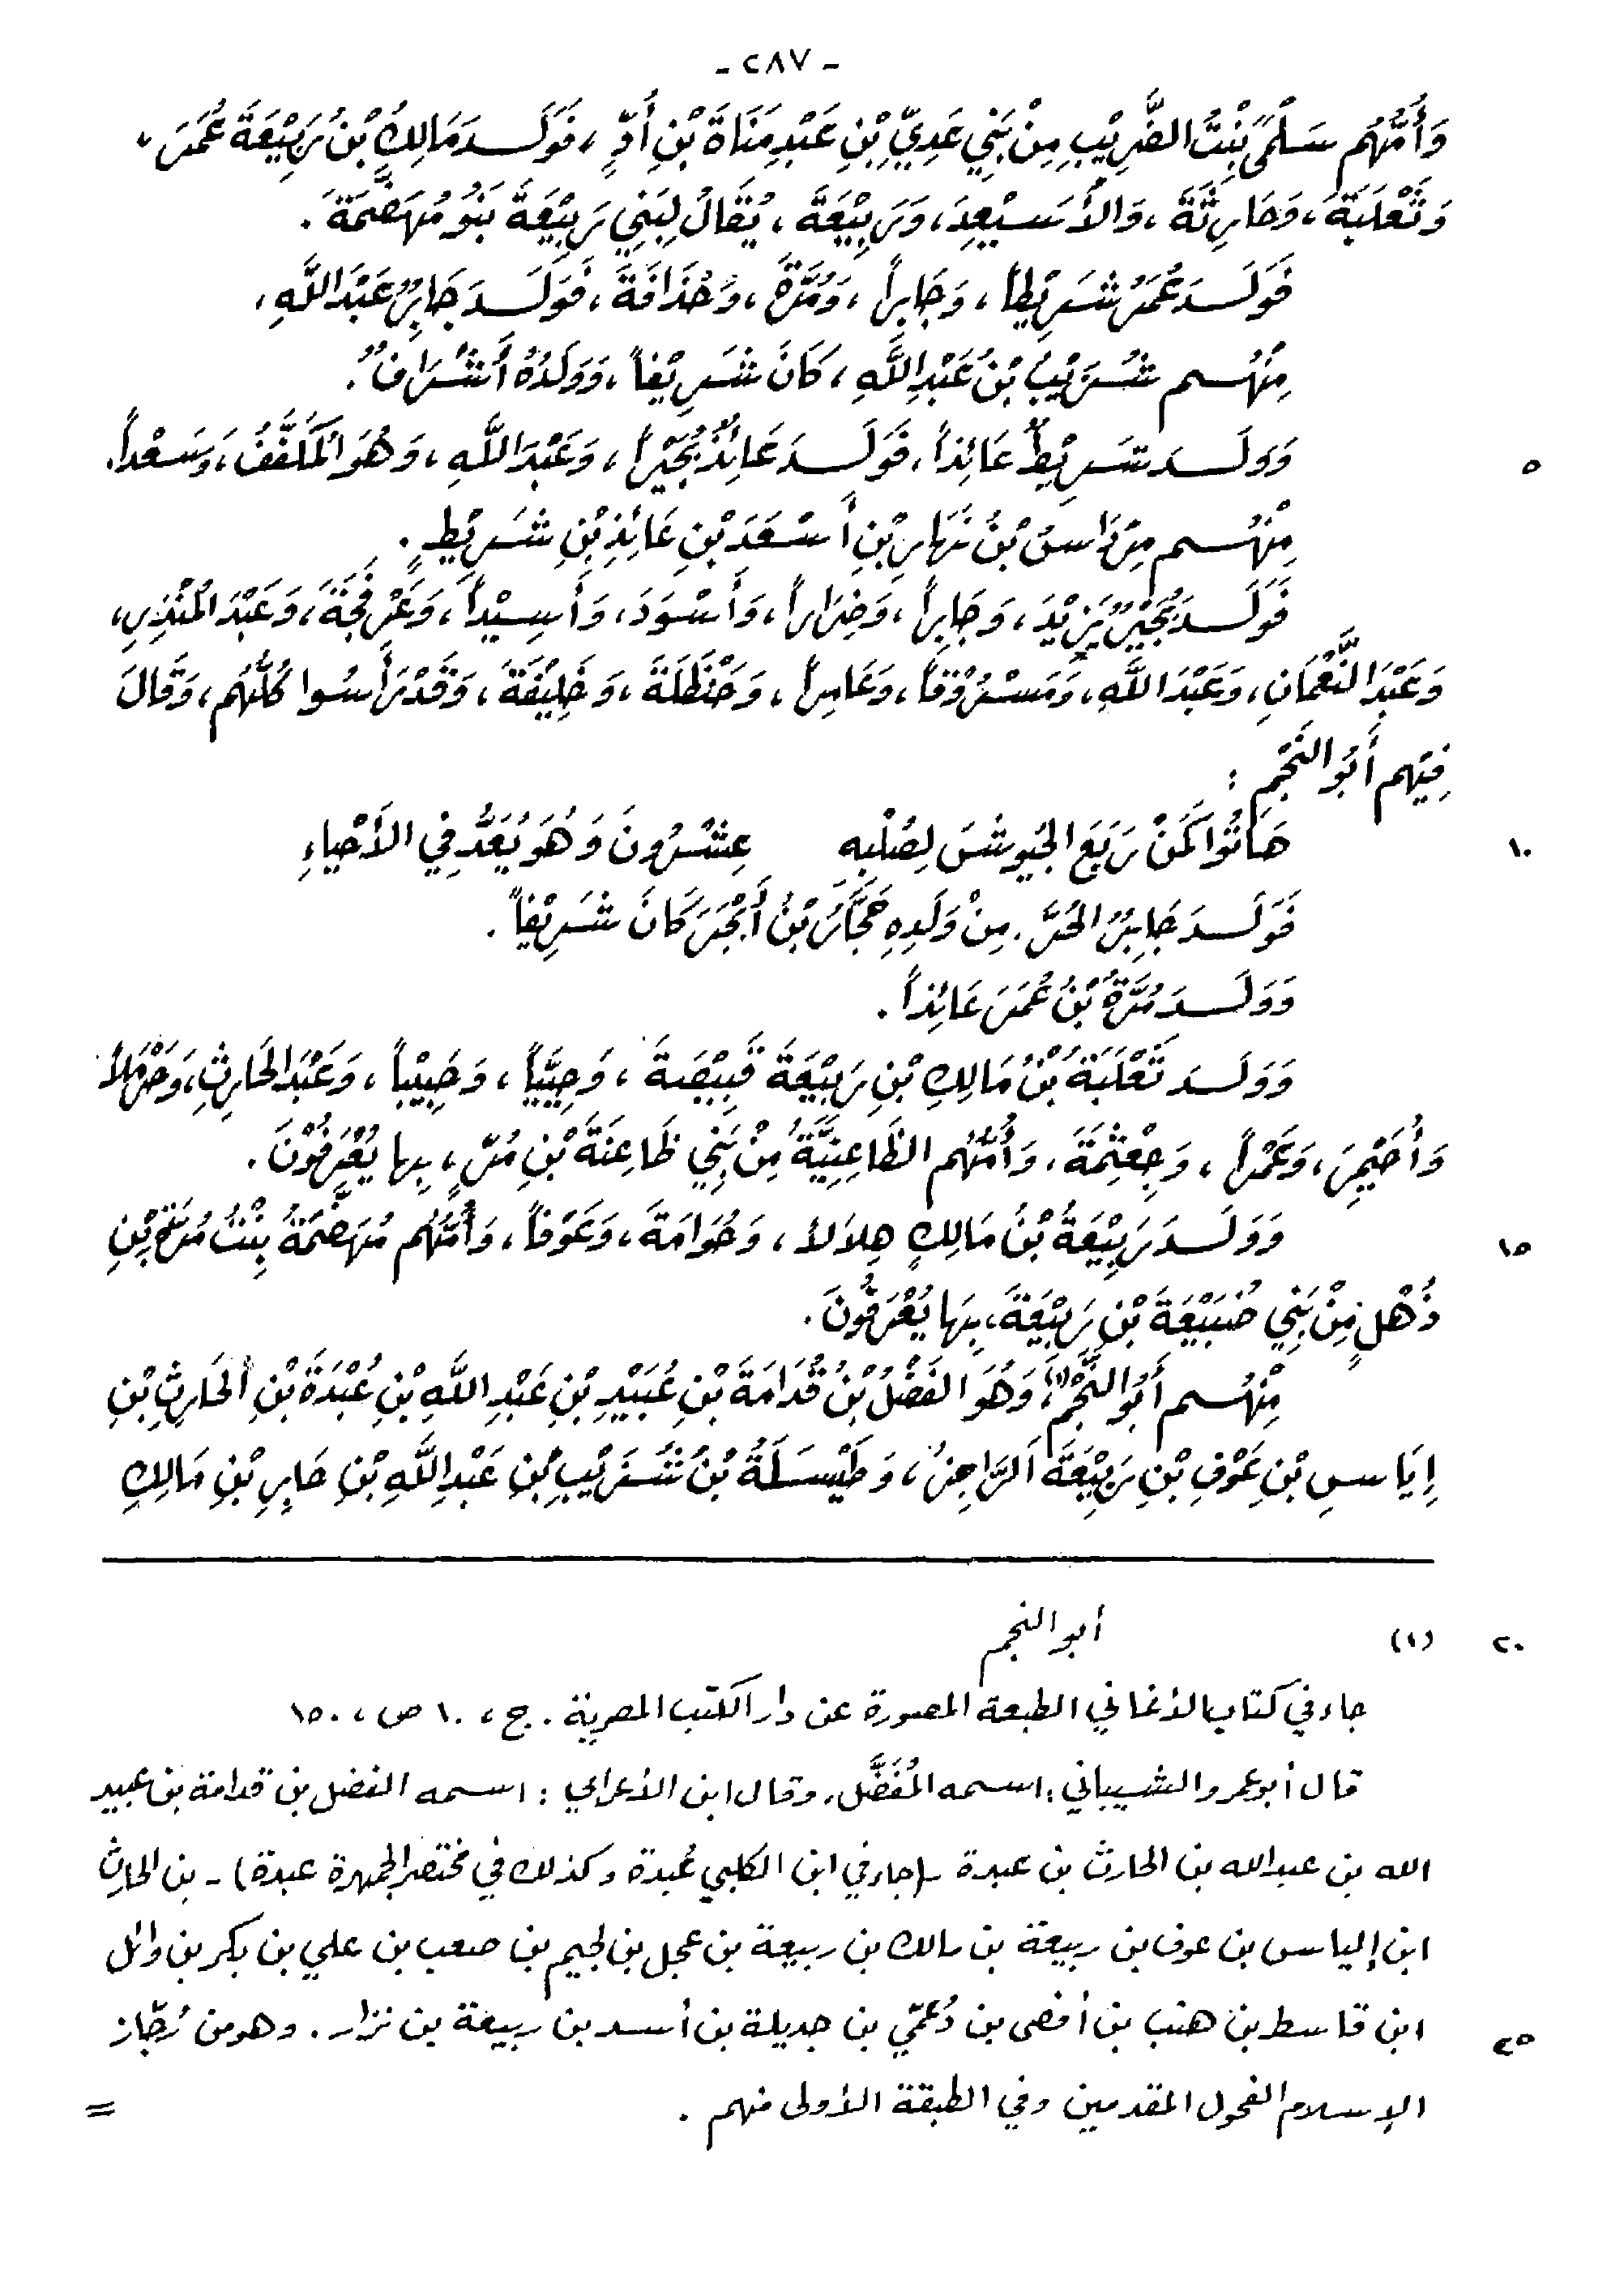 - ٢٨٧ -
وَأُمُّهُم سَلْمَى بِنْتُ الضَّرِيْبِ مِنْ بَنِي عَدِيِّ بْنِ عَبْدِ مَنَاةَ بْنِ أُدٍّ، فَوَلَـدَ مَالِكُ بْنُ رَبِيْعَةَ عُمَرَ،
وَثَعْلَبَةَ، وَحَارِثَةَ، وَالأُسَيْعِدَ، وَرَبِيْعَةَ، يُقَالُ لِبَنِي رَبِيْعَةَ بَنُو مُهَضَّمَةَ.
فَوَلَـدَ عُمَرُ شَرِيْطاً، وَجَابِراً، وَمُرَّةَ، وَحُذَافَةَ، فَوَلَـدَ جَابِرٌ عَبْدَ اللَّهِ،
مِنْهُـم شُرَيْبُ بْنُ عَبْدِ اللَّهِ، كَانَ شَرِيْفاً، وَوَلَدُهُ أَشْرَافٌ.
٥ وَوَلَـدَ شَرِيْطٌ عَائِذاً، فَوَلَـدَ عَائِذٌ بُجَيْراً، وَعَبْدَ اللَّهِ، وَهُوَ المُكَفَّفُ، وَسَعْداً.
مِنْهُـم مِرْدَاسُ بْنُ نَهَارِ بْنِ أَسْعَدَ بْنِ عَائِذِ بْنِ شَرِيْطٍ.
فَوَلَـدَ بُجَيْرٌ يَزِيْدَ، وَجَابِراً، وَضِرَاراً، وَأَسْوَدَ، وَأَسِيْداً، وَعَرْفَجَةَ، وَعَبْدَ المُنْذِرِ،
وَعَبْدَ النُّعْمَانِ، وَعَبْدَ اللَّهِ، وَمَسْرُوْقاً، وَعَامِراً، وَحَنْظَلَةَ، وَخَلِيْفَةَ، وَقَدْ رَأَسُوا كُلُّهُم، وَقَالَ
فِيْهِم أَبُو النَّجْمِ :
١٠ هَاتُوا كَمَنْ رَبَعَ الجُيُوشَ لِصُلْبِهِ عِشْرُونَ وَهُوَ يُعَدُّ فِي الأَحْيَاءِ
فَوَلَـدَ جَابِرٌ الحُرَّ. مِنْ وَلَدِهِ حَجَّارُ بْنُ أَبْجَرَ كَانَ شَرِيْفاً.
وَوَلَـدَ مُرَّةُ بْنُ عُمَرَ عَائِذاً.
وَوَلَـدَ ثَعْلَبَةُ بْنُ مَالِكِ بْنِ رَبِيْعَةَ قَبِيْصَةَ، وَحِيَيّاً، وَحَبِيْباً، وَعَبْدَ الحَارِثِ، وَحَرْمَلاً
وَأُحَيْمِرَ، وَعَمْراً، وَجِعْثِمَةَ، وَأُمُّهُم الظَّاعِنِيَّةُ مِنْ بَنِي ظَاعِنَةَ بْنِ مُرٍّ، بِها يُعْرَفُوْنَ.
١٥ وَوَلَـدَ رَبِيْعَةُ بْنُ مَالِكٍ هِلاَلاً، وَحُوَامَةَ، وَعَوْفاً، وَأُمُّهُم مُهَضَّمَةُ بِنْتُ مُرَّةَ بْنِ
ذُهْلٍ مِنْ بَنِي ضُبَيْعَةَ بْنِ رَبِيْعَةَ، بِهَا يُعْرَفُونَ.
مِنْهُـم أَبُو النَّجْمِ(١)، وَهُوَ الفَضْلُ بْنُ قُدَامَةَ بْنِ عُبَيْدِ بْنِ عَبْدِ اللَّهِ بْنِ عُبْدَةَ بْنِ الحَارِثِ بْنِ
إِيَاسِ بْنِ عَوْفِ بْنِ رَبِيْعَةَ الرَّاجِزُ، وَطَيْسَلَةُ بْنُ شُرَيْبِ بْنِ عَبْدِ اللَّهِ بْنِ جَابِرِ بْنِ مَالِكِ
٢٠ (١) أبو النجم
جاء في كتاب الأغاني الطبعة المصورة عن دار الكتب المصرية. ج، ١٠ ص، ١٥٠
قال أبو عمرو الشيباني: اسمه المُفَضَّل، وقال ابن الأعرابي : اسمه الفضل بن قدامة بن عبيد
الله بن عبد الله بن الحارث بن عبدة -(جاء في ابن الكلبي عُبدة وكذلك في مختصر الجمهرة عبدة)- بن الحارث
ابن إلياس بن عوف بن ربيعة بن مالك بن ربيعة بن عجل بن لجيم بن صعب بن علي بن بكر بن وائل
٢٥ ابن قاسط بن هنب بن أفصى بن دُعْمّي بن جديلة بن أسد بن ربيعة بن نزار. وهو من رُجّاز
الإسلام الفحول المقدمين وفي الطبقة الأولى منهم. =